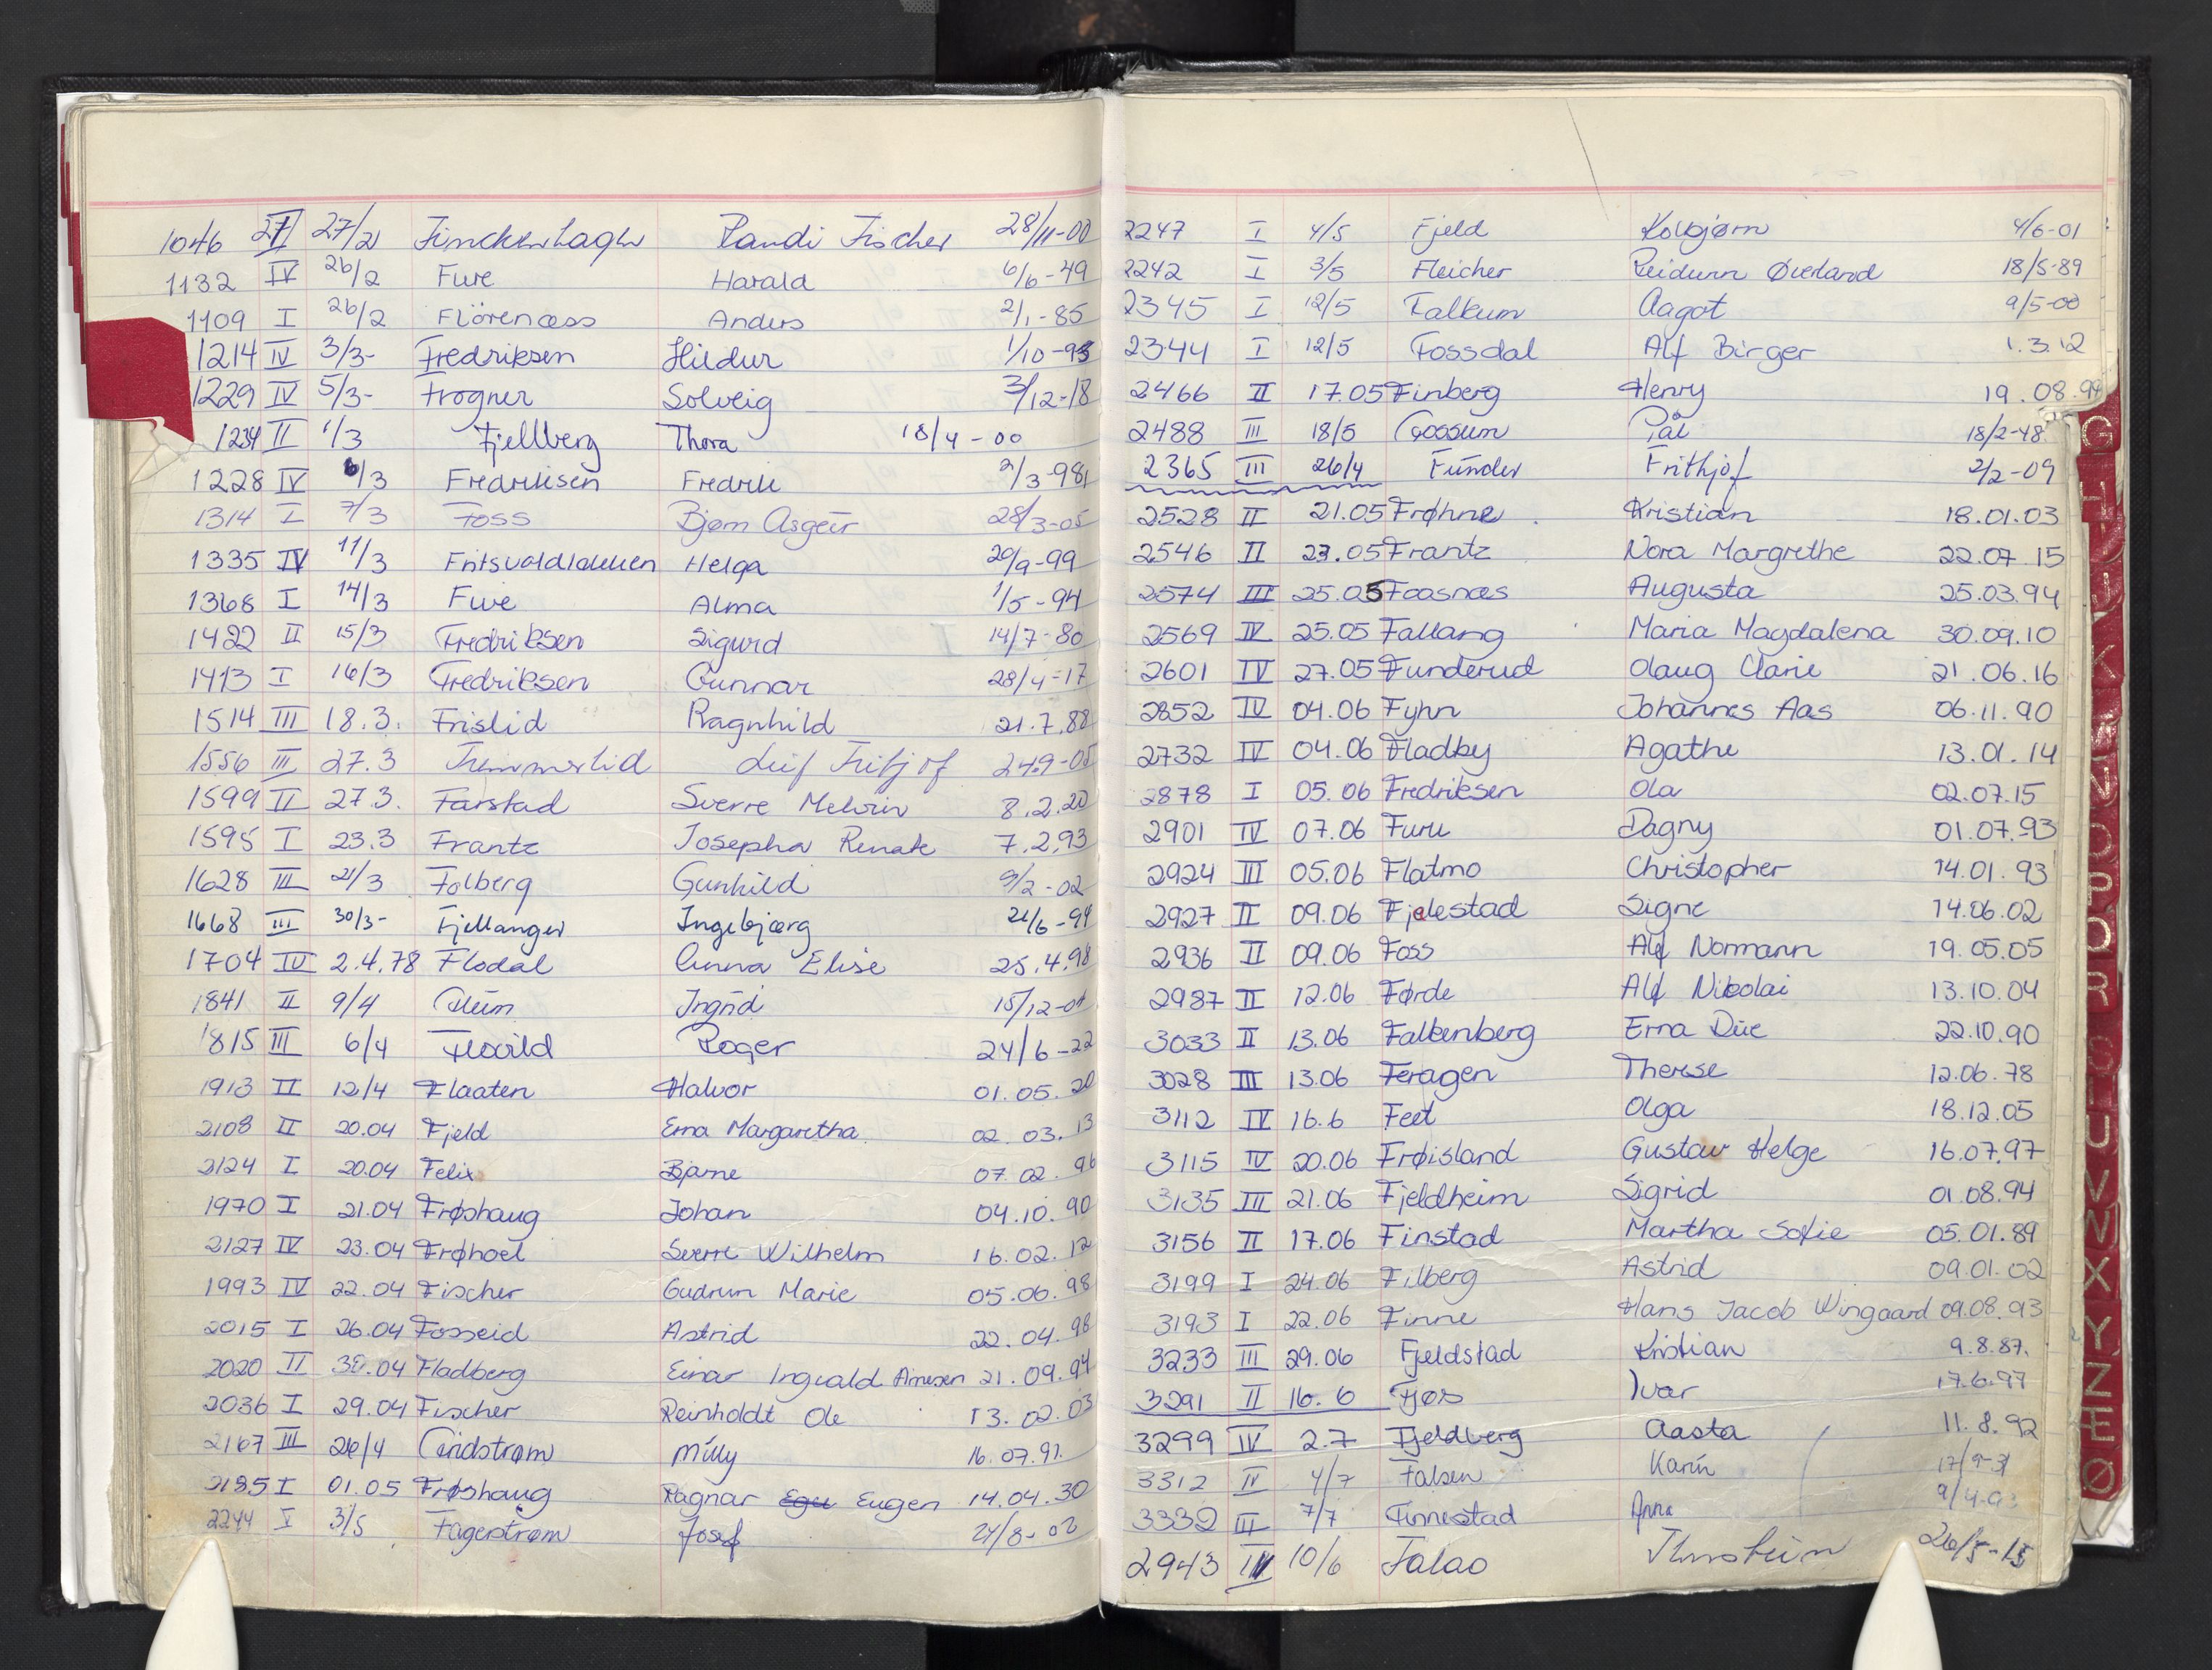 1046 II 27/2 Finckenhagen Randi Fischer 28/11-00
1132 IV 26/2 Five Harald 6/6-49
1109 I 26/2 Florenæss Anders 2/1-85
1214 IV 3/3- Fredriksen Hildur 1/10-93
1229 IV 5/3- Frogner Solveig 3/12-18
1234 II 1/3 Fjellberg Thora 18/4-00
1228 IV 6/3 Fredriksen Fredrik 2/3-98
1314 I 7/3 Foss Bjørn Asgeir 28/3-05
1335 IV 11/3 Helga 20/9-99
1368 I 14/3 Five Alma 1/5-94
1422 II 15/3 Fredriksen Sigurd 14/7-80
1413 I 16/3 Fredriksen Gunnar 28/4-17
1514 III 18.3. Frislid Ragnhild 21.7.88
1556 III 27.3 Fremmerlid Leif Fritjof 24.9-05
1599 II 27.3. Farstad Sverre Melvin 8.2.20
1595 I 23.3 Frantz Josepha Renate 7.2.93
1628 III 21/3 Folberg Gunhild 9/2-02
1668 III 30/3- Fjellanger Ingebjørg 21/6-94
1704 IV 2.4.78 Flodal Anna Elise 25.4.98
1841 II 9/4 Ingrid 15/12-04
1815 III 6/4 Floxild Roger 24/6-22
1913 II 12/4 Flaaten Halvor 01.05.20
2108 II 20.04 Fjeld Erna Margaretha 02.03.13
2124 I 20.04 Felix Bjarne 07.02.96
1970 I 21.04 Frøshaug Johan 04.10.90
2127 IV 23.04 Frøhoel Sverre Wilhelm 16.02.12
1993 IV 22.04 Fischer Gudrun Marie 05.06.98
2015 I 26.04 Fosseid Astrid 22.04.98
2020 II 30.04 Fladberg Einar Ingvald Arnesen 21.09.94
2036 I 29.04 Fischer Reinholdt Ole 13.02.03
2167 III 26/4 Milly 16.07.91.
2185 I 01.05 Frøshaug Ragnar Egu Eugen 14.04.30
2244 I 3/5 Fagerstrøm Josef 24/8-02
2247 I 4/5 Fjeld Kolbjørn 4/6-01
2242 I 3/5 Fleicher Reidunn Øverland 18/5-89
2345 I 12/5 Falkum Aagot 9/5-00
2344 I 12/5 Fossdal Alf Birger 1.3.12
2466 II 17.05 Finberg Henry 19.08.94
2488 III 18/5 Fossum Pål 18/2-48
2365 III 26/4 Fünder Frithjof 2/2-09
2528 II 21.05 Frøhne Kristian 18.01.03
2546 II 23.05 Frantz Nora Margrethe 22.07.15
2574 III 25.05 Foosnæs Augusta 25.03.94
2569 IV 25.05 Fallang Maria Magdalena 30.09.10
2601 IV 27.05 Funderud Olaug Clarie 21.06.16
2852 IV 04.06 Fyhn Johannes Aas 06.11.90
2732 IV 04.06 Fladby Agathe 13.01.14
2878 I 05.06 Fredriksen Ola 02.07.15
2901 IV 07.06 Furu Dagny 01.07.93
2924 III 05.06 Flatmo Christopher 14.01.93
2927 II 09.06 Fjelestad Signe 14.06.02
2936 II 09.06 Foss Alf Normann 19.05.05
2987 II 12.06 Førde Alf Nikolai 13.10.04
3033 II 13.06 Falkenberg Erna Düe 22.10.90
3028 III 13.06 Feragen Therese 12.06.78
3112 IV 16.6 Feet Olga 18.12.05
3115 IV 20.06 Frøisland Gustav Helge 16.07.97
3135 III 21.06 Fjeldheim Sigrid 01.08.94
3156 II 17.06 Finstad Martha Sofie 05.01.89
3199 I 24.06 Filberg Astrid 09.01.02
3193 I 22.06 Finne Hans Jacob Wingaard 09.08.93
3233 III 29.06 Fjeldstad Kristian 9.8.87.
3291 II 16.6 Fjøs Ivar 17.6.97
3299 IV 2.7 Fjeldberg Aasta 11.8.92
3312 IV 4/7 Falsen Karin 17/9-31
3332 III 7/7 Finnestad Anna
2943 10/6 Falao Thorstein 26/5-15
G
H
I
J
K
N
O
P
Q
R
S
T
U
V
W
X
Y
Z
Æ
Ø